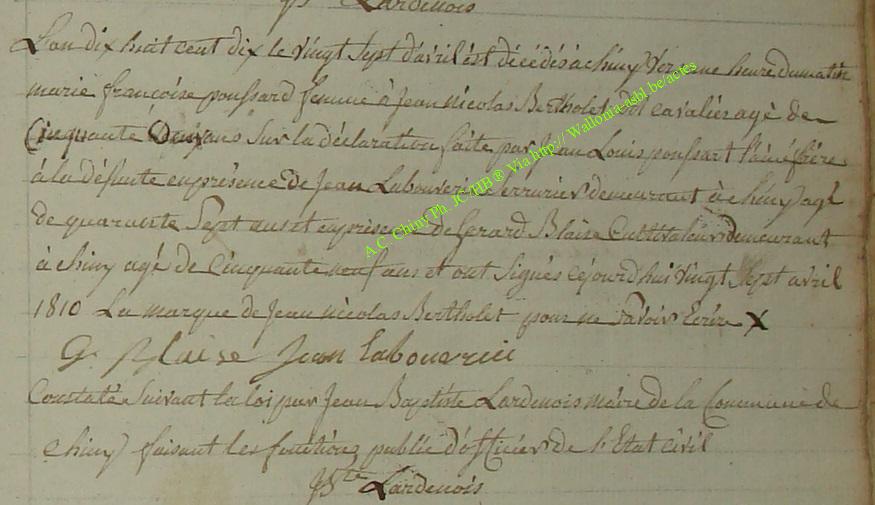 Lardenois
L'an dix huit cent dix le vingt sept d'avril est décédés à chiny vers une heure du matin
marie françoise poussard femme à Jean nicolas Bertholet dit cavalier agé de
Cinquante Deux ans Sur la déclaration faite par Jean Louis poussart l'ainé frére
à la défunte en présence de Jean Labouverie serrurier demeurant à chiny agé
de quarante Sept ans et en présence de Gerard Blaise Cultivateur demeurant
à chiny agé de cinquante neuf ans et ont signés cejourd'hui vingt Sept avril
1810 La marque de Jean nicolas Bertholet pour ne savoir Ecrire X
G. Blaise Jean Labouverie
Constaté Suivant la loi par Jean Baptiste Lardenois maire de la Commune de
chiny faisant les fonctions public d'officier de l'Etat civil
JBte Lardenois
A.C. Chiny Ph. JC/HB ® Via http:// Wallonia-asbl.be/actes